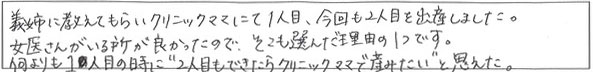 義姉に教えてもらいクリニックママにて1人目、今回も2人目を出産しました。
女医さんがいる所が良かったので、そこも選んだ理由の1つです。
何よりも1人目の時に"2人目もできたらクリニックママで産みたい"と思えた。